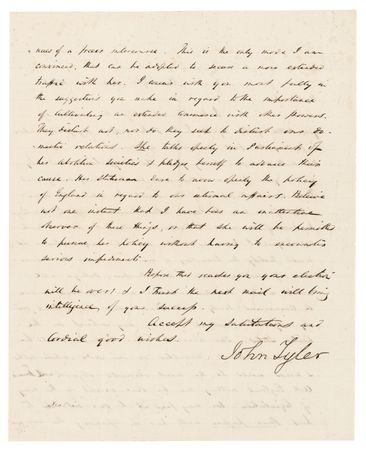 ness of a freer intercourse. This is the only mode I am
convinced, that can be adopted to secure a more extended
traffic with her. I concur with you most fully in
the suggestions you make in regard to the importance
of cultivating an extended commerce with other powers.
They distrust not, nor do they seek to disturb our do-
mestic relations. She talks openly in Parliament of
her abolition societies & pledges herself to advance their
cause. Her Statesmen dare to avow openly the policy
of England in regard to our internal affairs. Believe
not one instant that I have been an inattentive
observer of these things, or that she will be permitted
to pursue her policy without having to encounter
serious impediments.
Before this reaches you your election
will be over & I trust the next mail will bring
intelligence of your success.
Accept my Salutations and
Cordial good wishes.
John Tyler